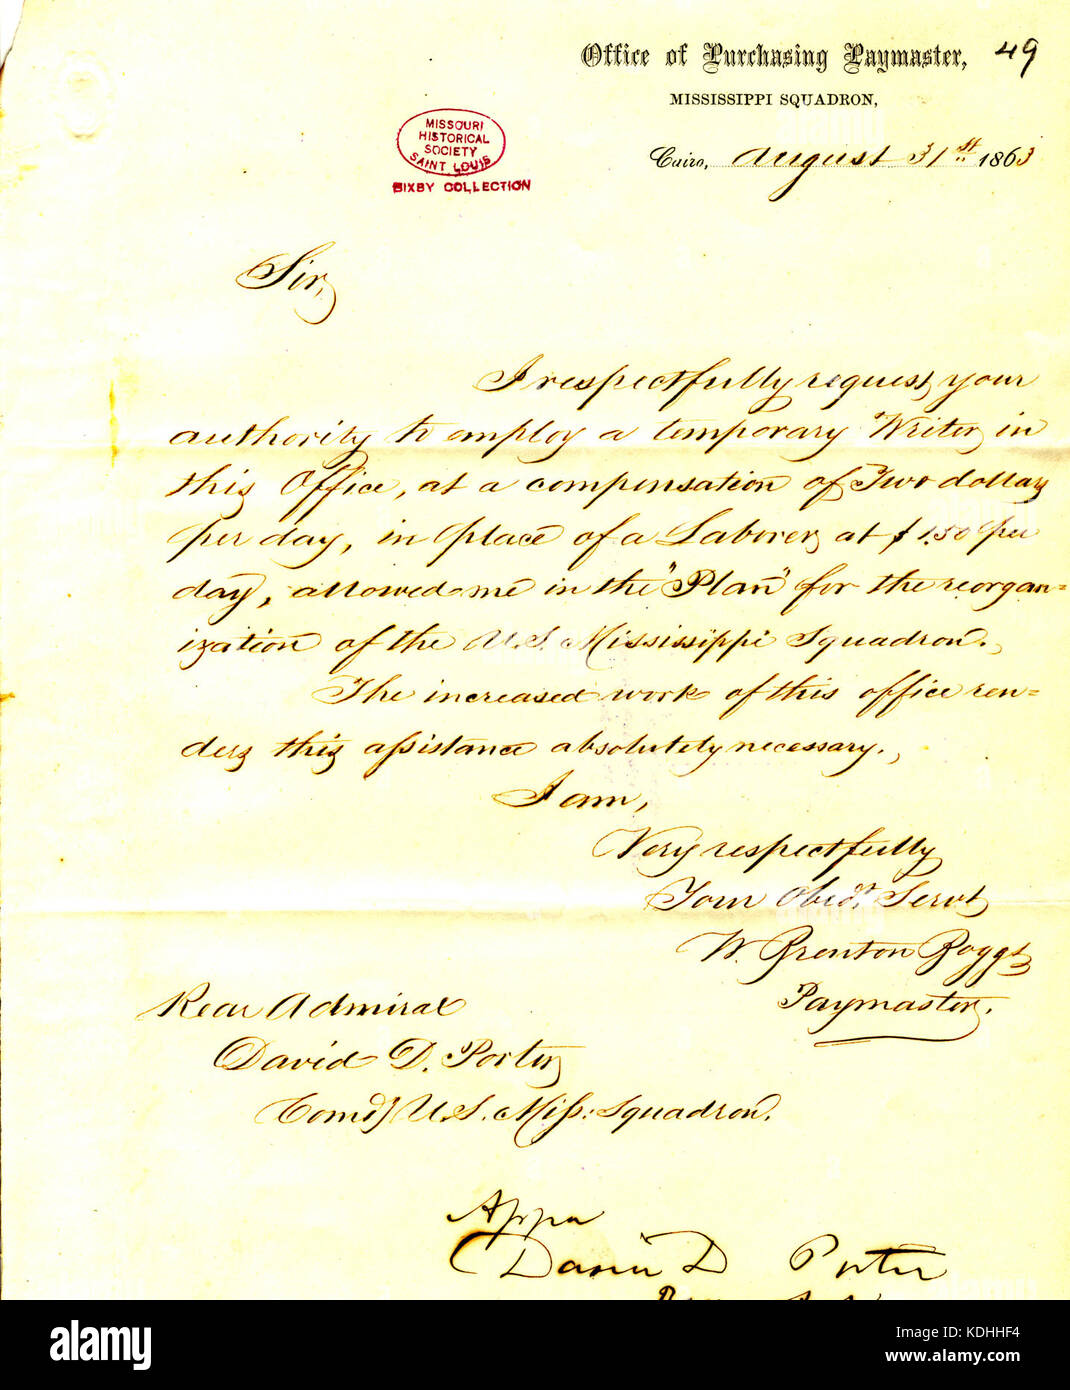 Office of Purchasing Paymaster, 49
MISSISSIPPI SQUADRON,
Cairo, August 31st 1863
MISSOURI
HISTORICAL
SOCIETY
SAINT LOUIS
BIXBY COLLECTION
Sir,
I respectfully request your
authority to employ a temporary Writer in
this Office, at a compensation of Two dollars
per day, in place of a Laborer, at $1.50 per
day, allowed me in the "Plan" for the reorgan=
ization of the U.S. Mississippi Squadron.,
The increased work of this office ren=
ders this assistance absolutely necessary.,
I am,
Very respectfully
Your Obedt. Servt
W. Brenton Boggs
Paymaster.
Rear Admiral
David D. Porter
Comd'g U.S. Miss: Squadron.
David D Porter
alamy
Image ID: KDHHF4
www.alamy.com